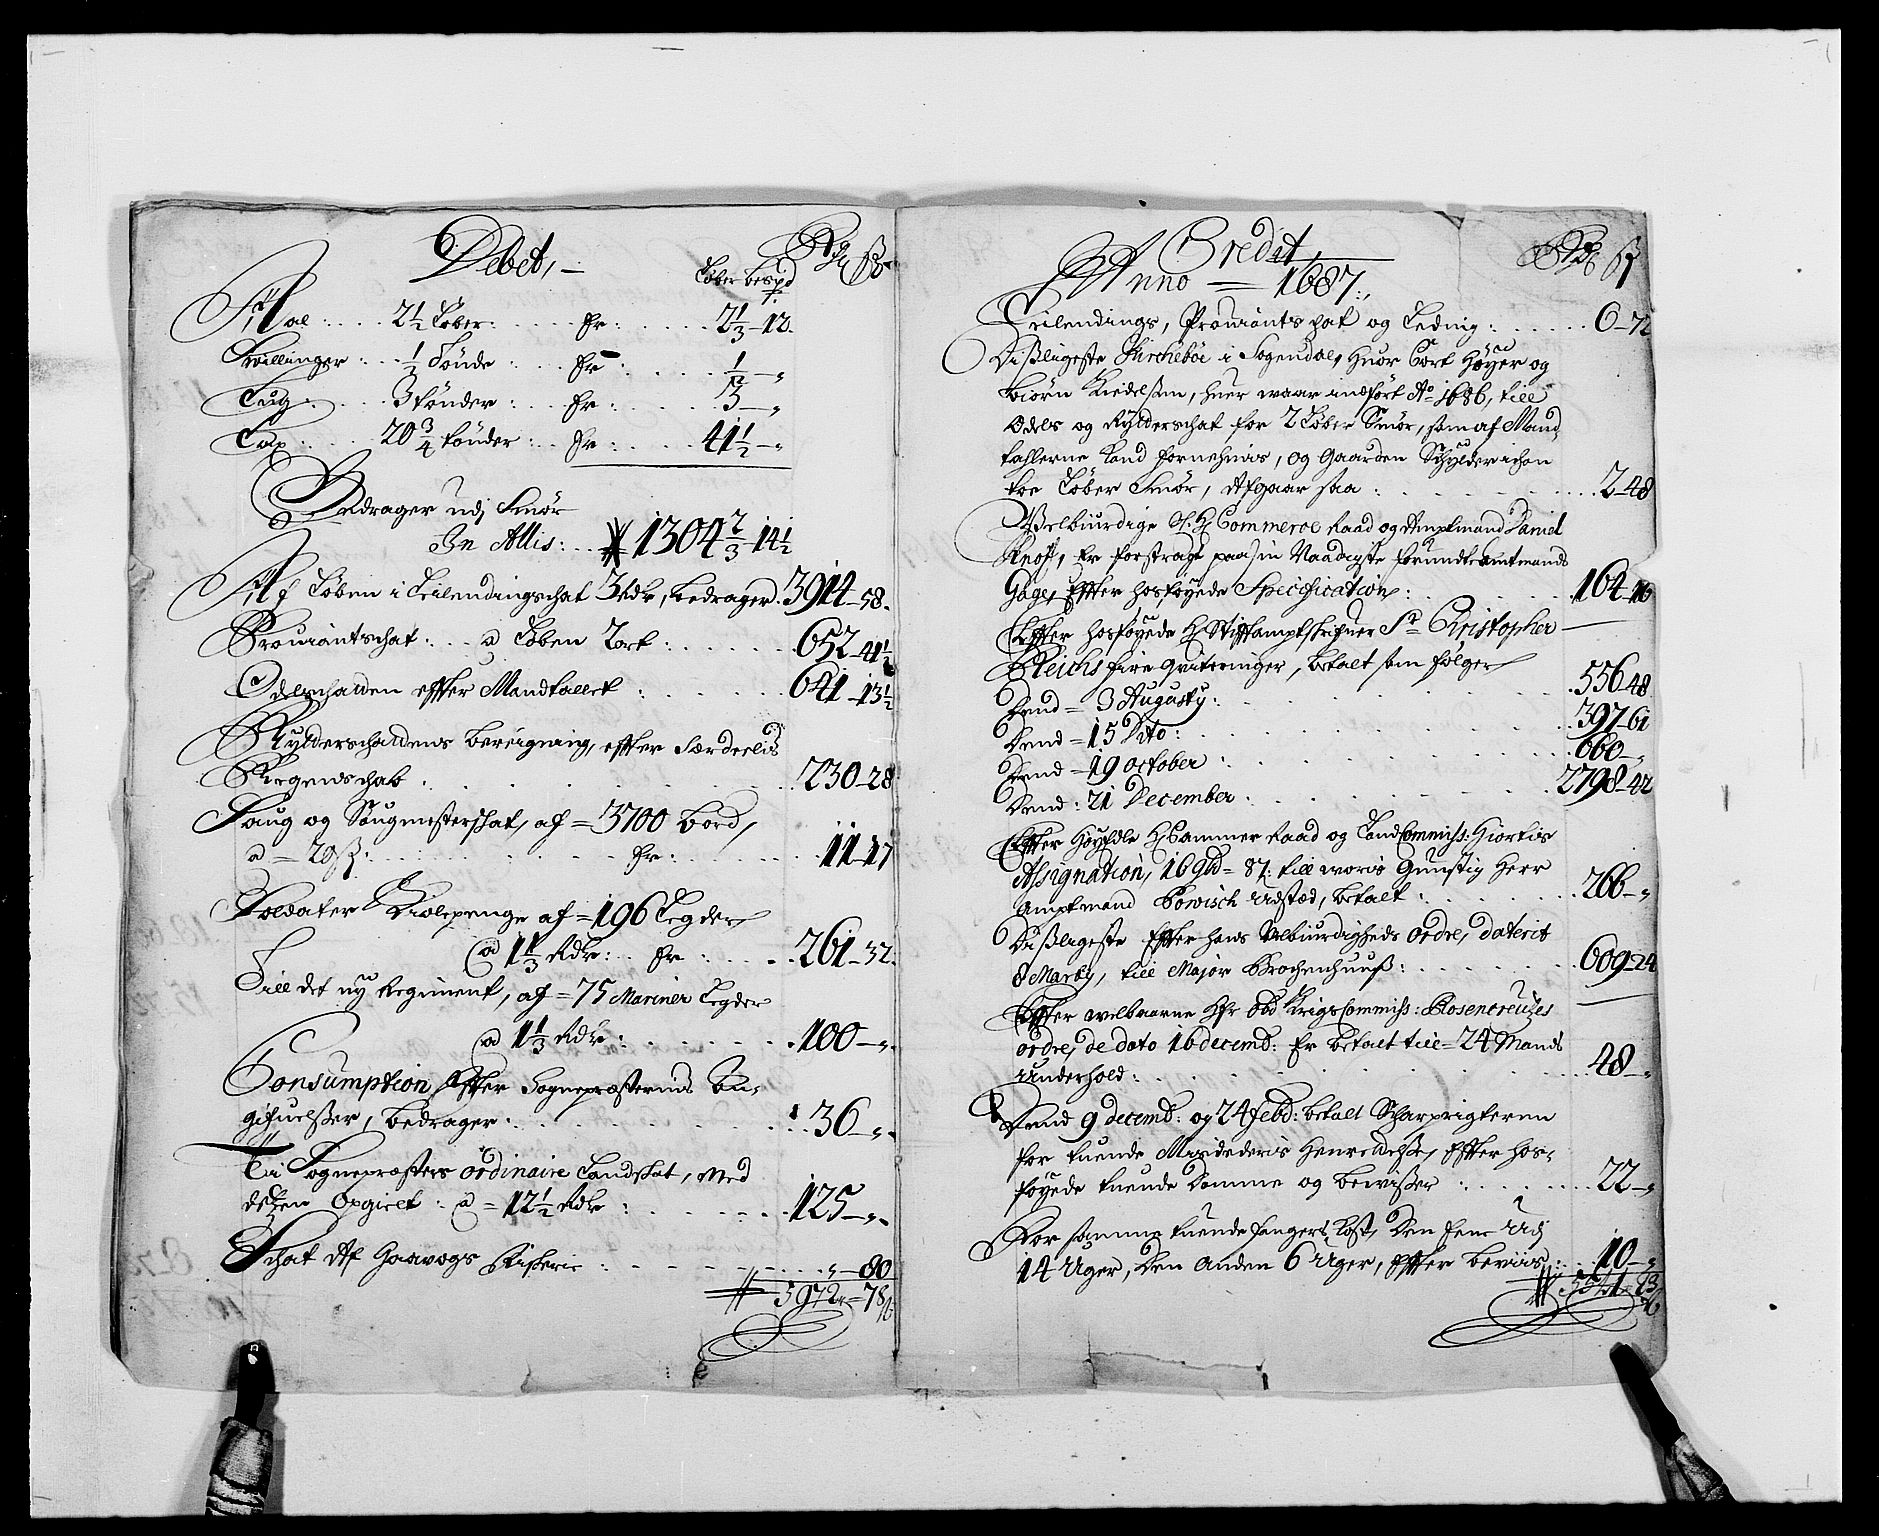 Debet, Rdr ß
Løber bespd
Aal : 2½ Løber : Er : 2⅓ - 12
Tvillinger : ½ Tønde : Er : ½ - „
Rug : 3 tønder : Er : 3 - „
Lax : 20¾ tønder : Er : 41½ - „
Bedrager udj Smør
In Allis : 1304⅔ - 14½
Af Løben i Leilendingschat 3 Rdr, bedrager 3914 - 58
Prouiantschat : a Løben 2 ort : 652 - 41½
Odelschatten effter Mandtallet : 641 - 13½
Rytterschattens beregning, effter særdeelis
Regenschab : 230 - 28
Saug og Saugmesterschat, af = 3700 bord,
a = 20 ß : Er : 11 - 17
Soldater Kiolepenge af = 196 Legder
a 1⅓ Rdr : Er : 261 - 32
Till det ny Regiment, af = 75 Mariner Legder
a 1⅓ Rdr : 100 - „
Consumption Effter Sognepræsternis An-
gifuelßer, bedrager : 36 - „
Ti Sognepræsters ordinaire Landskat, med
deßen Opgivet : a = 12½ Rdr : 125 - „
Schat Af Gaavogs Fischerie : „ - 80
5972 = 78 ß
Credit, Rdr ß
Anno = 1687 :
Leilendings, Prouiantschat og Ledning : 6 - 72
Dißligeste Kirchebøe i Sogendal, huor Cort Høyer og
Biørn Kieldßen, huer waar indført Ao 1686, till
Odels og Rytterschat for 2 Løber Smør, som af Mand-
tahlerne kand fornemmis, og Gaarden Schylder ichon
toe Løber Smør, Afgaar saa : 2 - 48
Velbiurdige Hr Commerce Raad og Amptmand Daniel
Knoff, Er forstragt paa sin Naadigste forundte amtmands
Gage, Effter hosføyede Specification : 164 - 16
Effter hosføyede H: Stifftamptschrifuer Sr Christopher
Bleichs fire qvitteringer, betalt som følger
Dend = 3 Augusty : 556 - 48
Dend = 15 Dito : 397 - 61
Dend = 19 october : 660 - „
Dend : 21 December : 2798 - 42
Effter Høyædle H: Cammer Raad og Land Commiss: Hiortis
Assignation, 16 9bd = 87: till woris Gunstig Herr
Amptmand Povisch Udsted, betalt : 266 - „
Dißligeste Effter hans Velbiurdigheds ordre, daterit
8 Marty, till Major Brochenhuuß : 609 - 24
Effter welbaarne Hr Krigs Commiss: Rosencreutzes
ordre, de dato 16 decemb: Er betalt till = 24 Mands
Underhold : 48 - „
Dend 9 decemb: og 24 febr: betalt Scharprigteren
for tuende Misdederis Henrettelße, Effter hos-
føyede tuende Domme og bevißer : 22 - „
For samme tuende fangers Kost, Den Eene Udj
14 Uger, Den Anden 6 Uger, Effter beviis : 10 - „
5541 - 23 ß